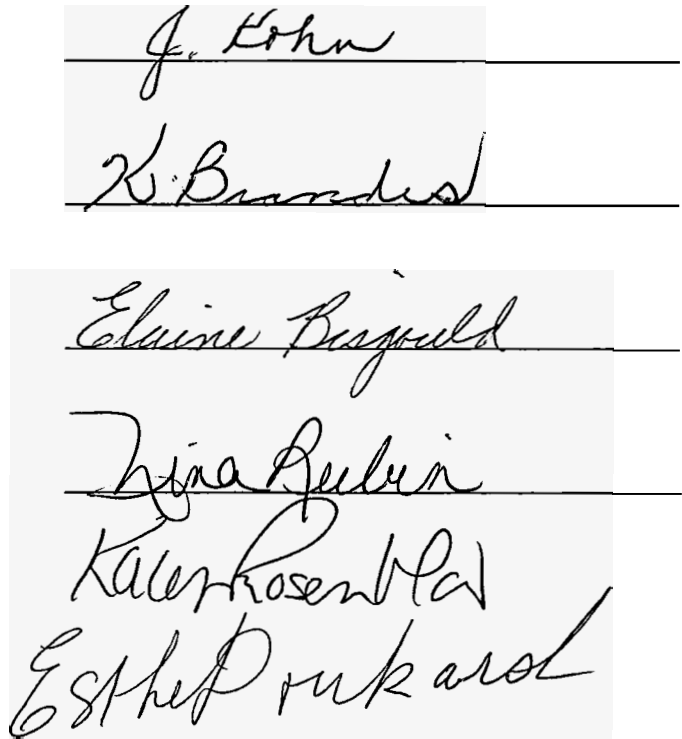 J. Kohn
K. Brandes
Elaine Bisgould
Nina Rubin
Karen Rosenblat
Esther